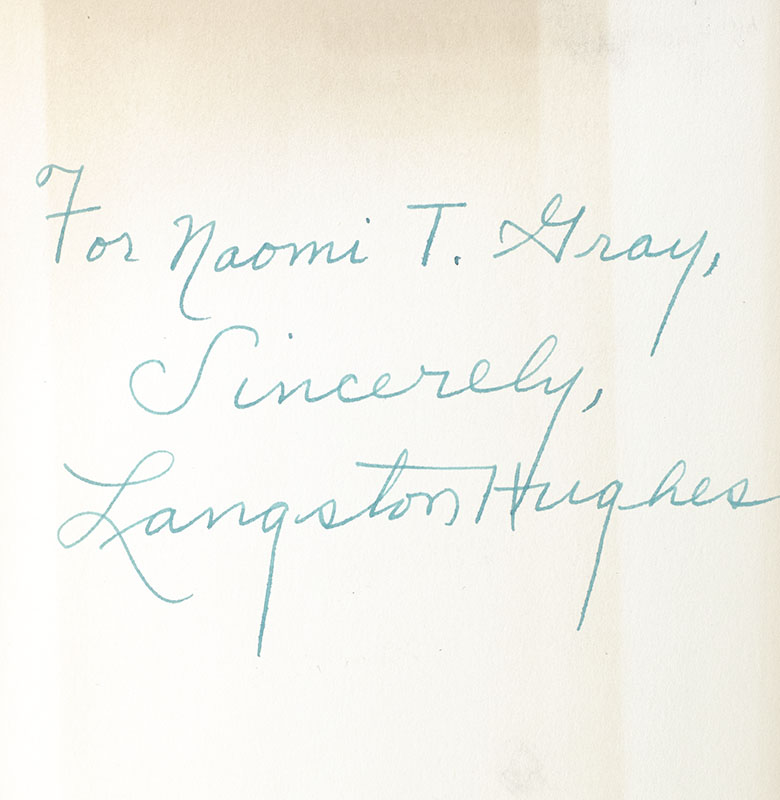 For Naomi T. Gray,
Sincerely,
Langston Hughes